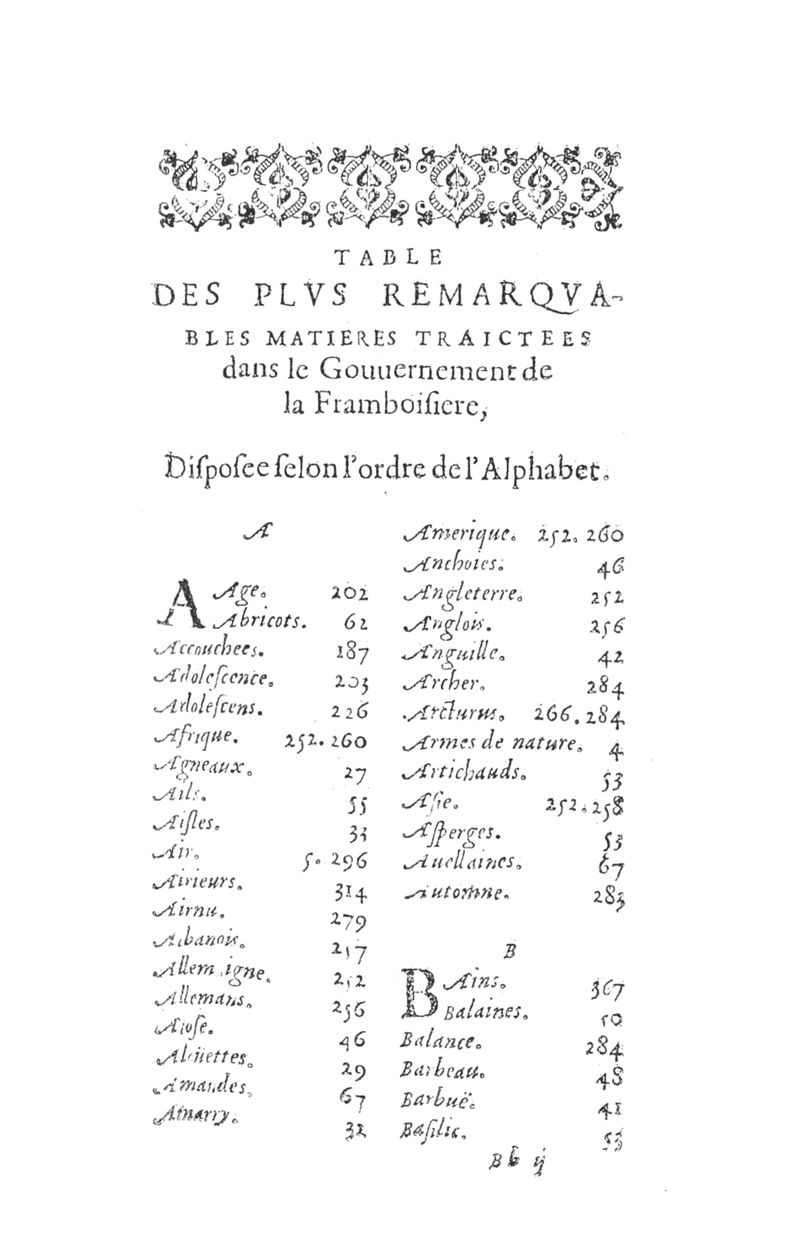 TABLE
DES PLVS REMARQVA-
BLES MATIERES TRAICTEES
dans le Gouuernement de
la Framboiſiere,
Diſpoſee ſelon l'ordre de l'Alphabet.
A
AAge. 202
Abricots. 62
Accouchees. 187
Adoleſcence. 203
Adoleſcens. 226
Afrique. 252. 260
Agneaux. 27
Ails. 55
Aiſles. 33
Air. 5. 296
Airieurs. 314
Airnu. 279
Albanois. 257
Allemaigne. 252
Allemans. 256
Aloſe. 46
Aloüettes. 29
Amandes. 67
32
Amerique. 252. 260
Anchoies. 46
Angleterre. 252
Anglois. 256
Anguille. 42
Archer. 284
Arcturus. 266. 284
Armes de nature. 4
Artichauds. 53
Aſie. 252. 258
Aſperges. 53
Auellaines. 67
Automne. 283
B
BAins. 367
Balaines. 50
Balance. 284
Barbeau. 48
Barbuë. 41
Baſilic. 53
Bb ij